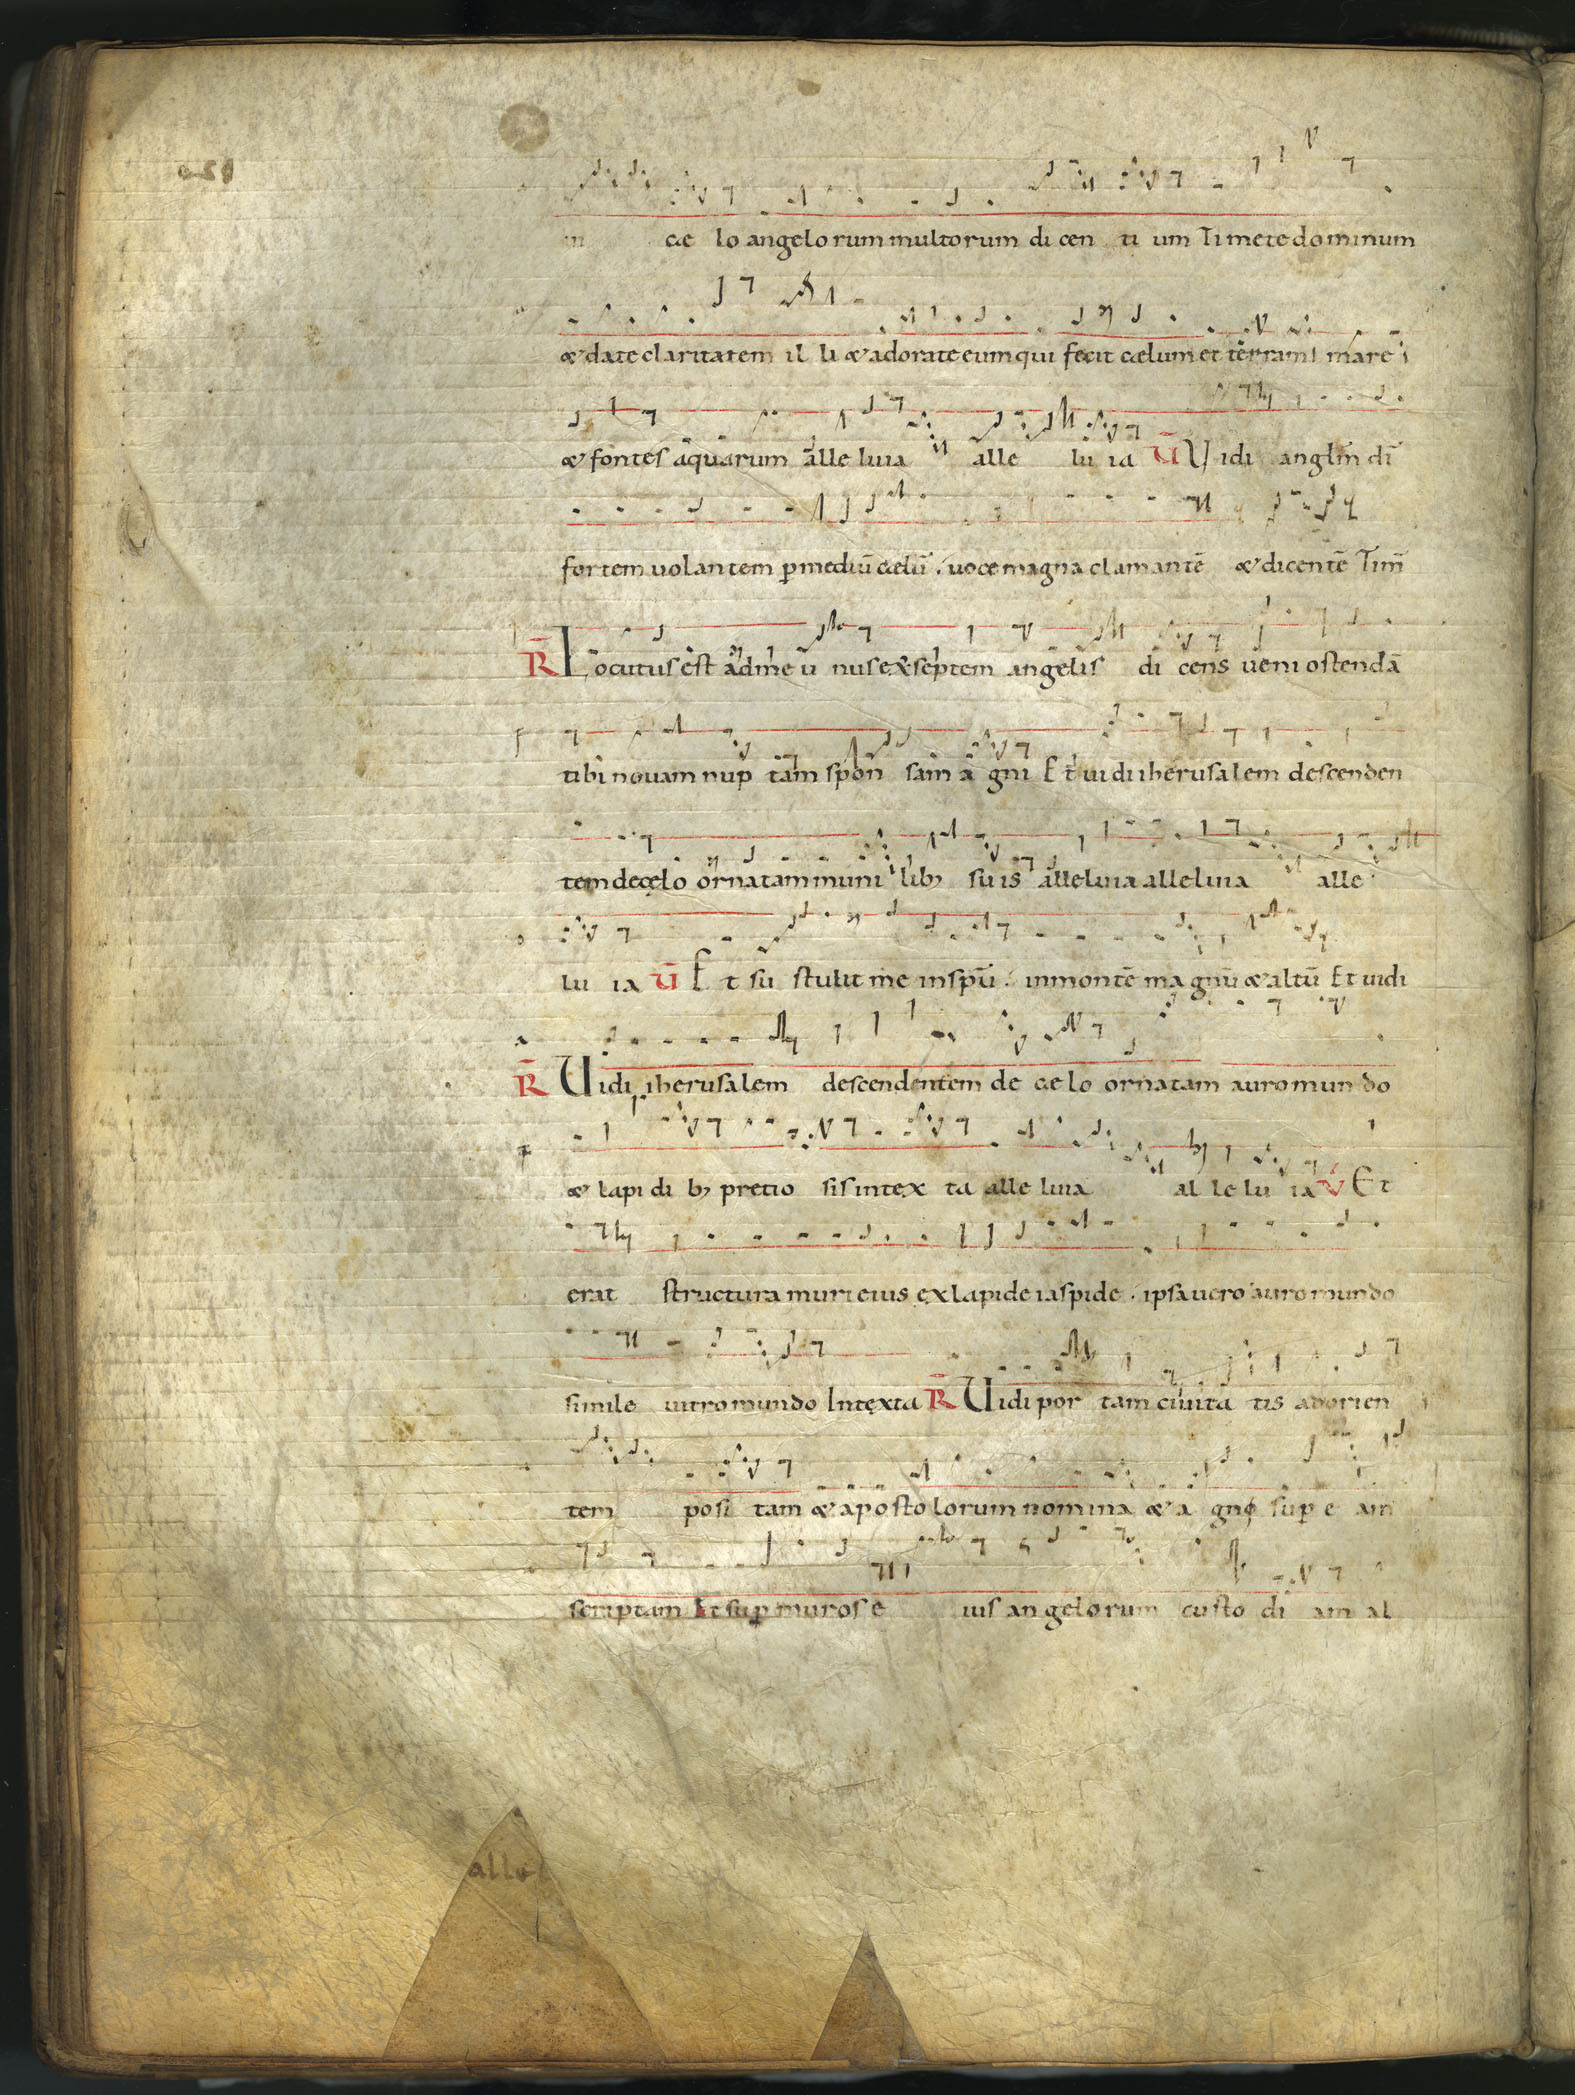 cae lo angelo rum multorum di cen ti um Timete dominum
& date claritatem il li & adorate eum qui fecit caelum et terram mare
& fontes aquarum alle luia alle lu ia V̄ Vidi anglm̄ dī
fortem uolantem p mediū caelū . uoce magna clamantē & dicentē Tim̄
R̄ Locutus est ad me u nus ex septem angelis di cens ueni ostendā
tibi nouam nup tam spon sam a gni Et uidi iherusalem descenden
tem de cęlo ornatam muni lib; su is alleluia alleluia alle
lu ia V̄ Et su stulit me in sp̄u . in montē ma gnū & altū Et uidi
R̄ Uidi iherusalem descendentem de caelo ornatam auro mun do
& lapi di b; pretio sis intex ta alle luia al le lu ia V Et
erat structura muri eius ex lapide iaspide . ipsa uero auro mundo
simile uitro mundo Intexta R̄ Uidi por tam ciuita tis ad orien
tem posi tam & apostolorum nomina & a gni sup e am
scriptam Et sup muros e ius angelorum custo di am al
alle